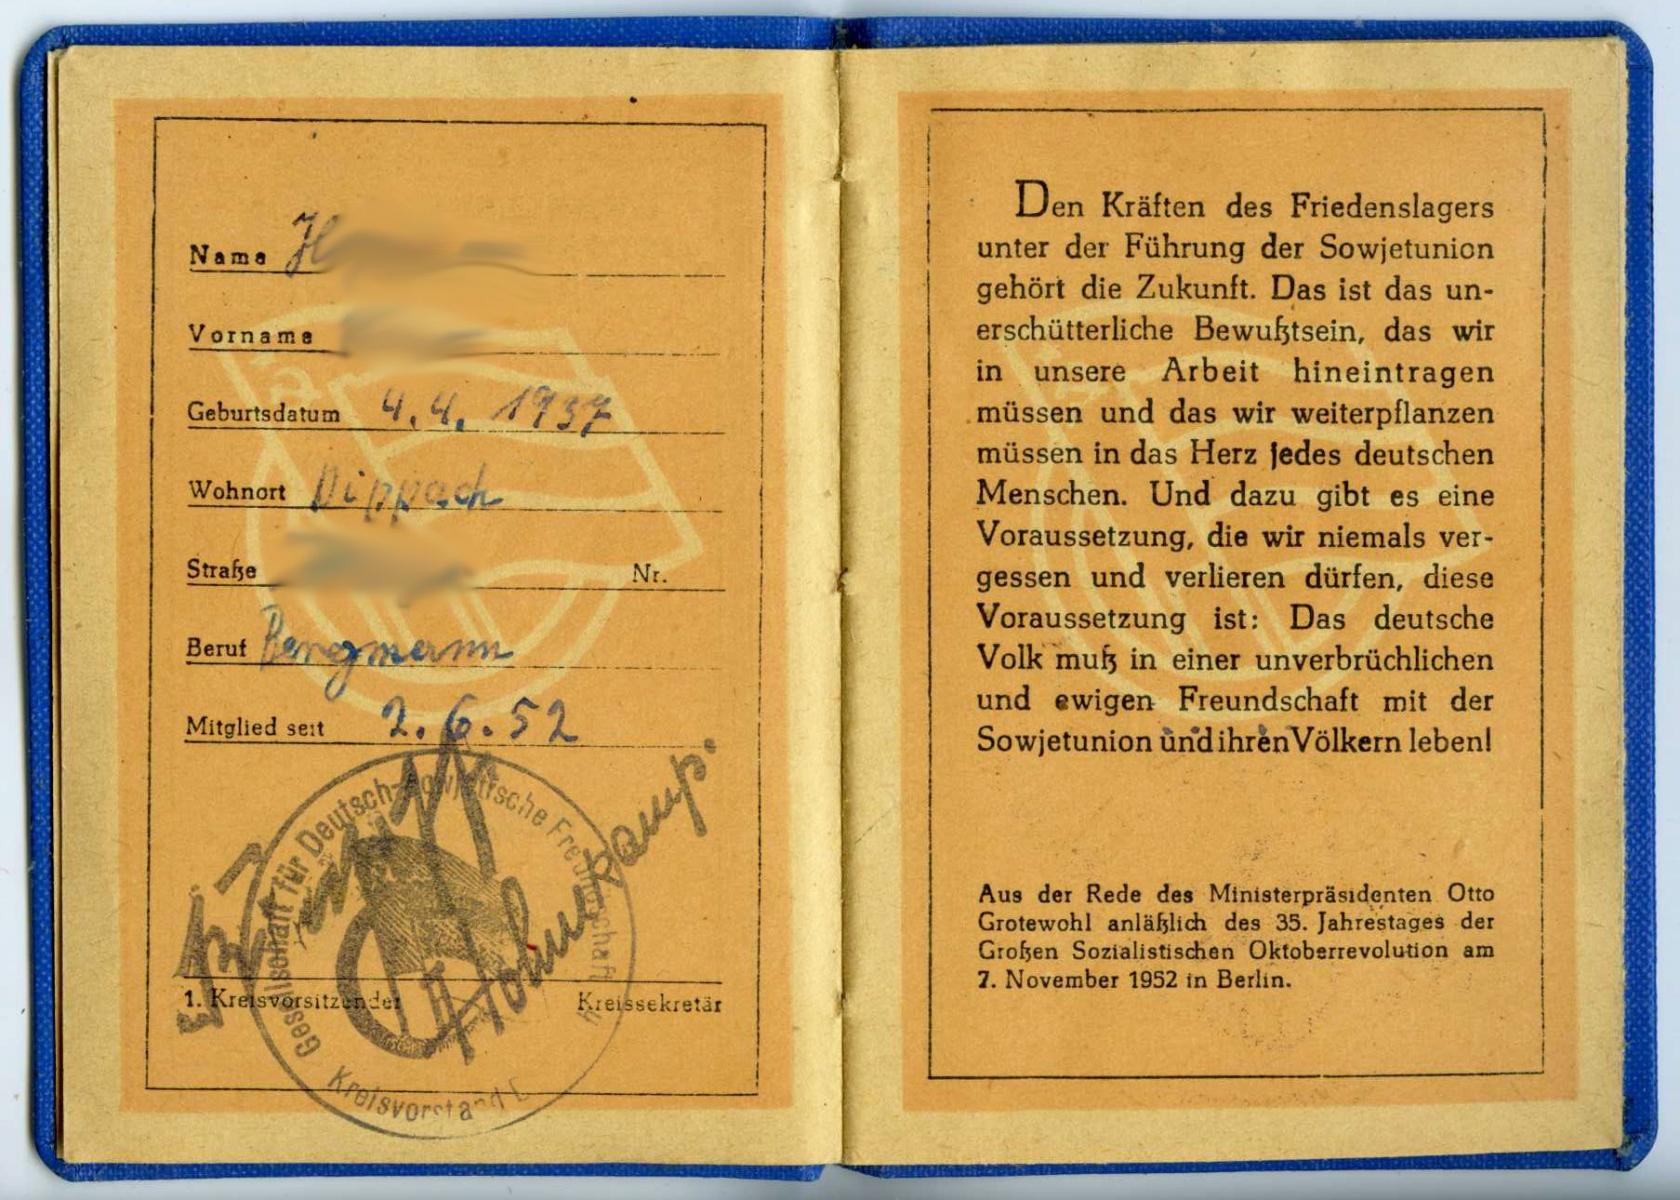 Name
Vorname
Geburtsdatum 4.4.1937
Wohnort Dippach
Straße Nr.
Beruf Bergmann
Mitglied seit 2.6.52
Gesellschaft für Deutsch-Sowjetische Freundschaft
1. Kreisvorsitzender Kreissekretär
Kreisvorstand
Den Kräften des Friedenslagers
unter der Führung der Sowjetunion
gehört die Zukunft. Das ist das un-
erschütterliche Bewußtsein, das wir
in unsere Arbeit hineintragen
müssen und das wir weiterpflanzen
müssen in das Herz jedes deutschen
Menschen. Und dazu gibt es eine
Voraussetzung, die wir niemals ver-
gessen und verlieren dürfen, diese
Voraussetzung ist: Das deutsche
Volk muß in einer unverbrüchlichen
und ewigen Freundschaft mit der
Sowjetunion und ihren Völkern leben!
Aus der Rede des Ministerpräsidenten Otto
Grotewohl anläßlich des 35. Jahrestages der
Großen Sozialistischen Oktoberrevolution am
7. November 1952 in Berlin.